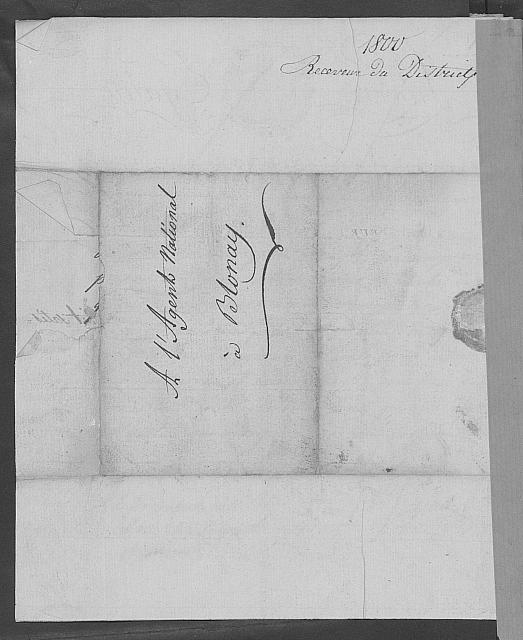 1800
Receveur du District
A l'Agent National
à Blonay.